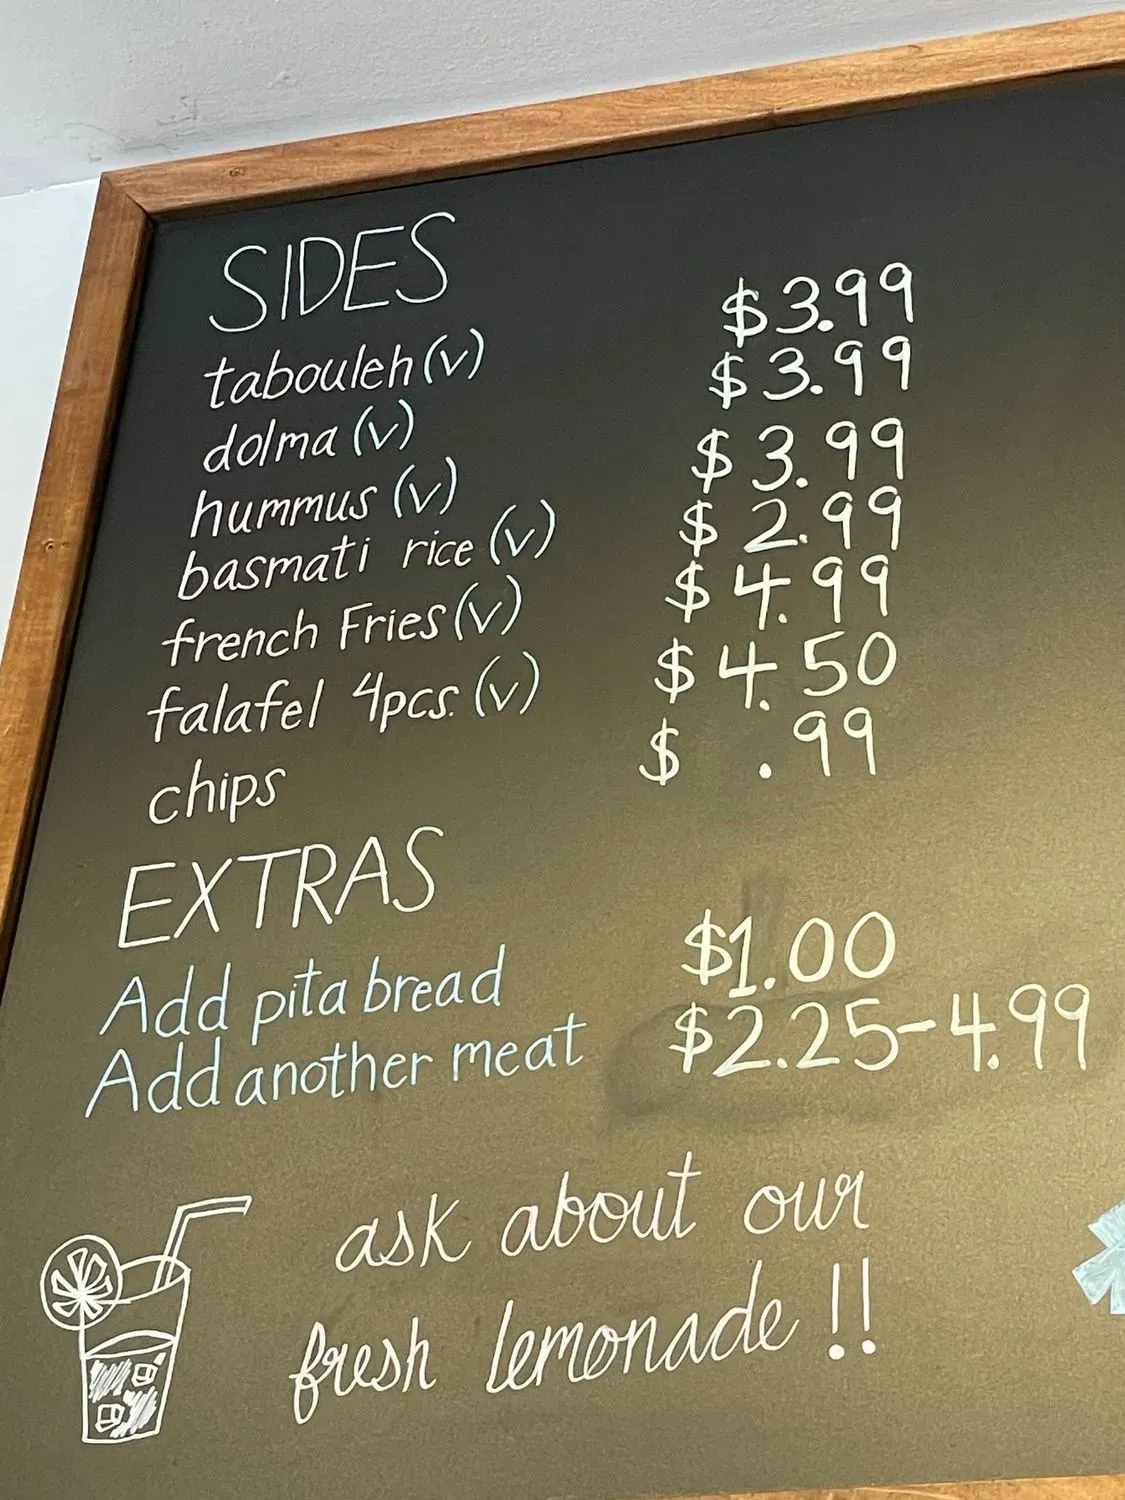 SIDES
tabouleh (v) $3.99
dolma (v) $3.99
hummus (v) $3.99
basmati rice (v) $2.99
french Fries (v) $4.99
falafel 4pcs. (v) $4.50
chips $ .99
EXTRAS
Add pita bread $1.00
Add another meat $2.25-4.99
ask about our
fresh lemonade!!